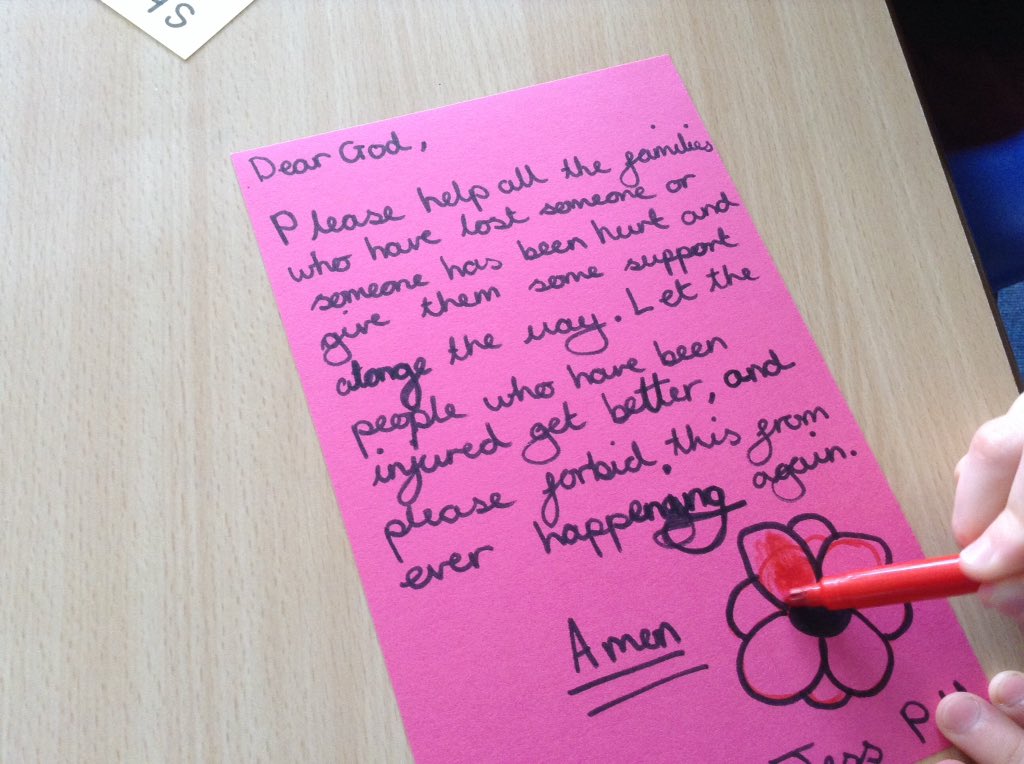 Dear God,
Please help all the families
who have lost someone or
someone has been hurt and
give them some support
alonge the way. Let the
people who have been
injured get better, and
please forbid, this from
ever happenging again.
Amen
Jess P